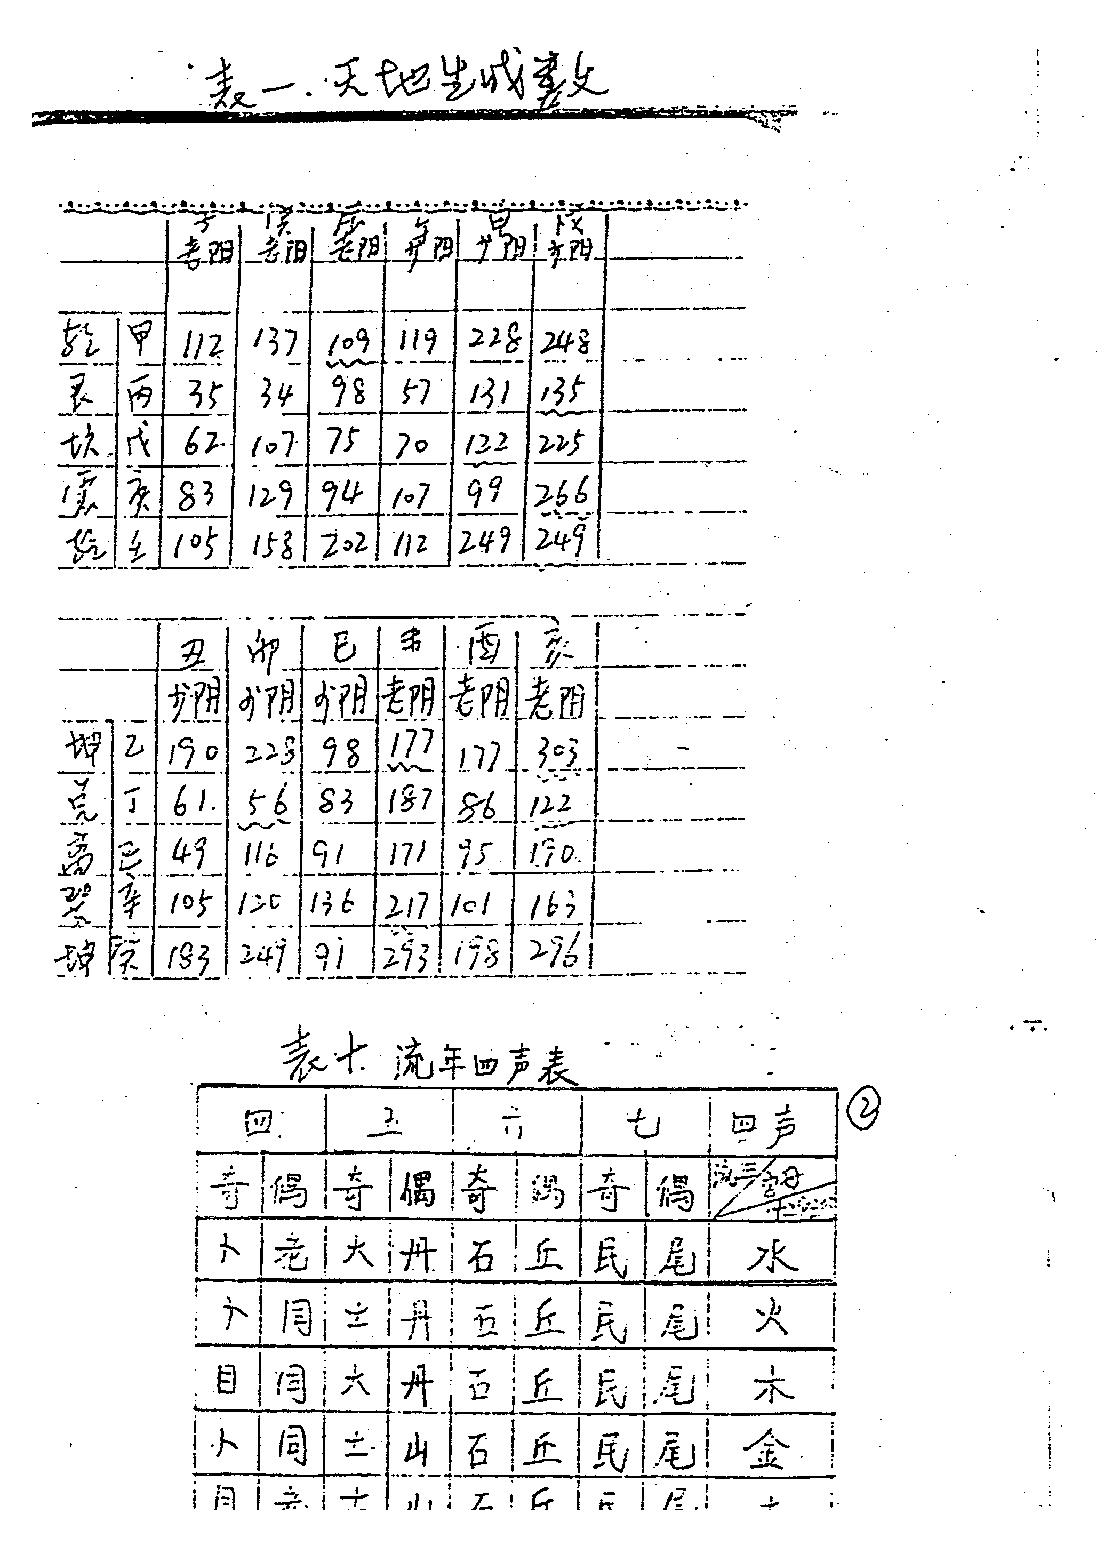 表一.天地生成数
子 寅 辰 午 申 戌
老阴 老阴 老阴 少阴 少阴 少阴
乾 甲 112 137 109 119 228 248
艮 丙 35 34 98 57 131 135
坎 戊 62 107 75 70 122 225
震 庚 83 129 94 107 99 266
乾 壬 105 158 202 112 249 249
丑 卯 巳 未 酉 亥
少阴 少阴 少阴 老阴 老阴 老阴
坤 乙 190 228 98 177 177 303
兑 丁 61. 56 83 187 86 122
离 己 49 116 91 171 95 190
巽 辛 105 120 136 217 101 163
坤 癸 183 249 91 293 198 296
表十.流年四声表
四 五 六 七 四声
②
奇 偶 奇 偶 奇 偶 奇 偶
卜 老 大 丹 石 丘 民 尾 水
卜 闩 土 丹 五 丘 民 尾 火
目 闩 大 丹 石 丘 民 尾 木
卜 同 土 山 石 丘 民 尾 金